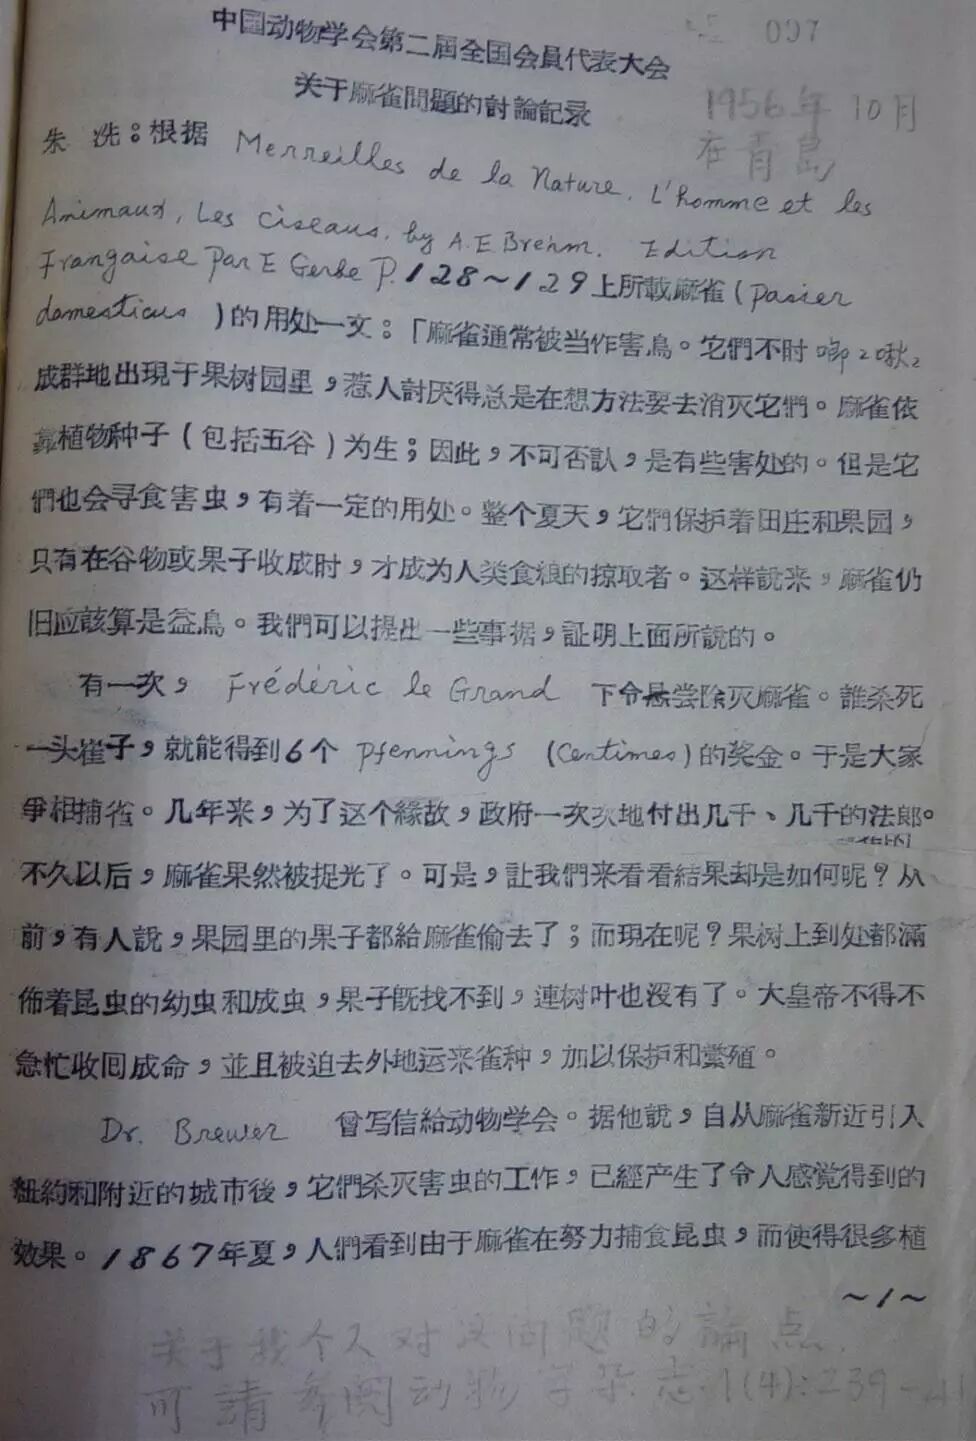 中国动物学会第二届全国会員代表大会
097
关于麻雀問題的討論記录
1956年10月
在青島
朱 洗：根据 Merreilles de la Nature. L'homme et les
Animaux, Les Oiseaux. by A.E. Brehm. Edition
Française Par E Gerbe P. 128～129上所載麻雀(Passer
domesticus )的用处一文：「麻雀通常被当作害鳥。它們不时啣2啾2
成群地出現于果树园里，惹人討厌得总是在想方法要去消灭它們。麻雀依
靠植物种子(包括五谷)为生；因此，不可否認，是有些害处的。但是它
們也会寻食害虫，有着一定的用处。整个夏天，它們保护着田庄和果园，
只有在谷物或果子收成时，才成为人类食粮的掠取者。这样說来，麻雀仍
旧应該算是益鳥。我們可以提出一些事据，証明上面所說的。
有一次， Frédéric le Grand 下令悬尝除灭麻雀。誰杀死
一头雀子，就能得到6个 Pfennings (Centimes)的奖金。于是大家
爭相捕雀。几年来，为了这个緣故，政府一次次地付出几千、几千的法郎。
不久以后，麻雀果然被捉光了。可是，讓我們来看看結果却是如何呢？从
前，有人說，果园里的果子都給麻雀偷去了；而現在呢？果树上到处都滿
佈着昆虫的幼虫和成虫，果子旣找不到，連树叶也沒有了。大皇帝不得不
急忙收回成命，並且被迫去外地运来雀种，加以保护和繁殖。
Dr. Brewer 曾写信給动物学会。据他說，自从麻雀新近引入
紐約和附近的城市後，它們杀灭害虫的工作，已經产生了令人感覚得到的
效果。1867年夏，人們看到由于麻雀在努力捕食昆虫，而使得很多植
～1～
关于我个人对这问题的論点
可請参阅动物学杂志1(4):239-41